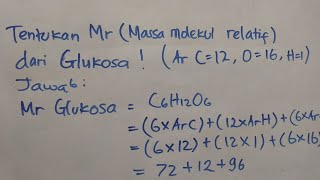 Tentukan Mr (Massa molekul relatif)
dari Glukosa ! (Ar C=12, O=16, H=1)
Jawab :
Mr Glukosa = C6H12O6
= (6×ArC)+(12×ArH)+(6×Ar
= (6×12)+(12×1)+(6×16)
= 72+12+96